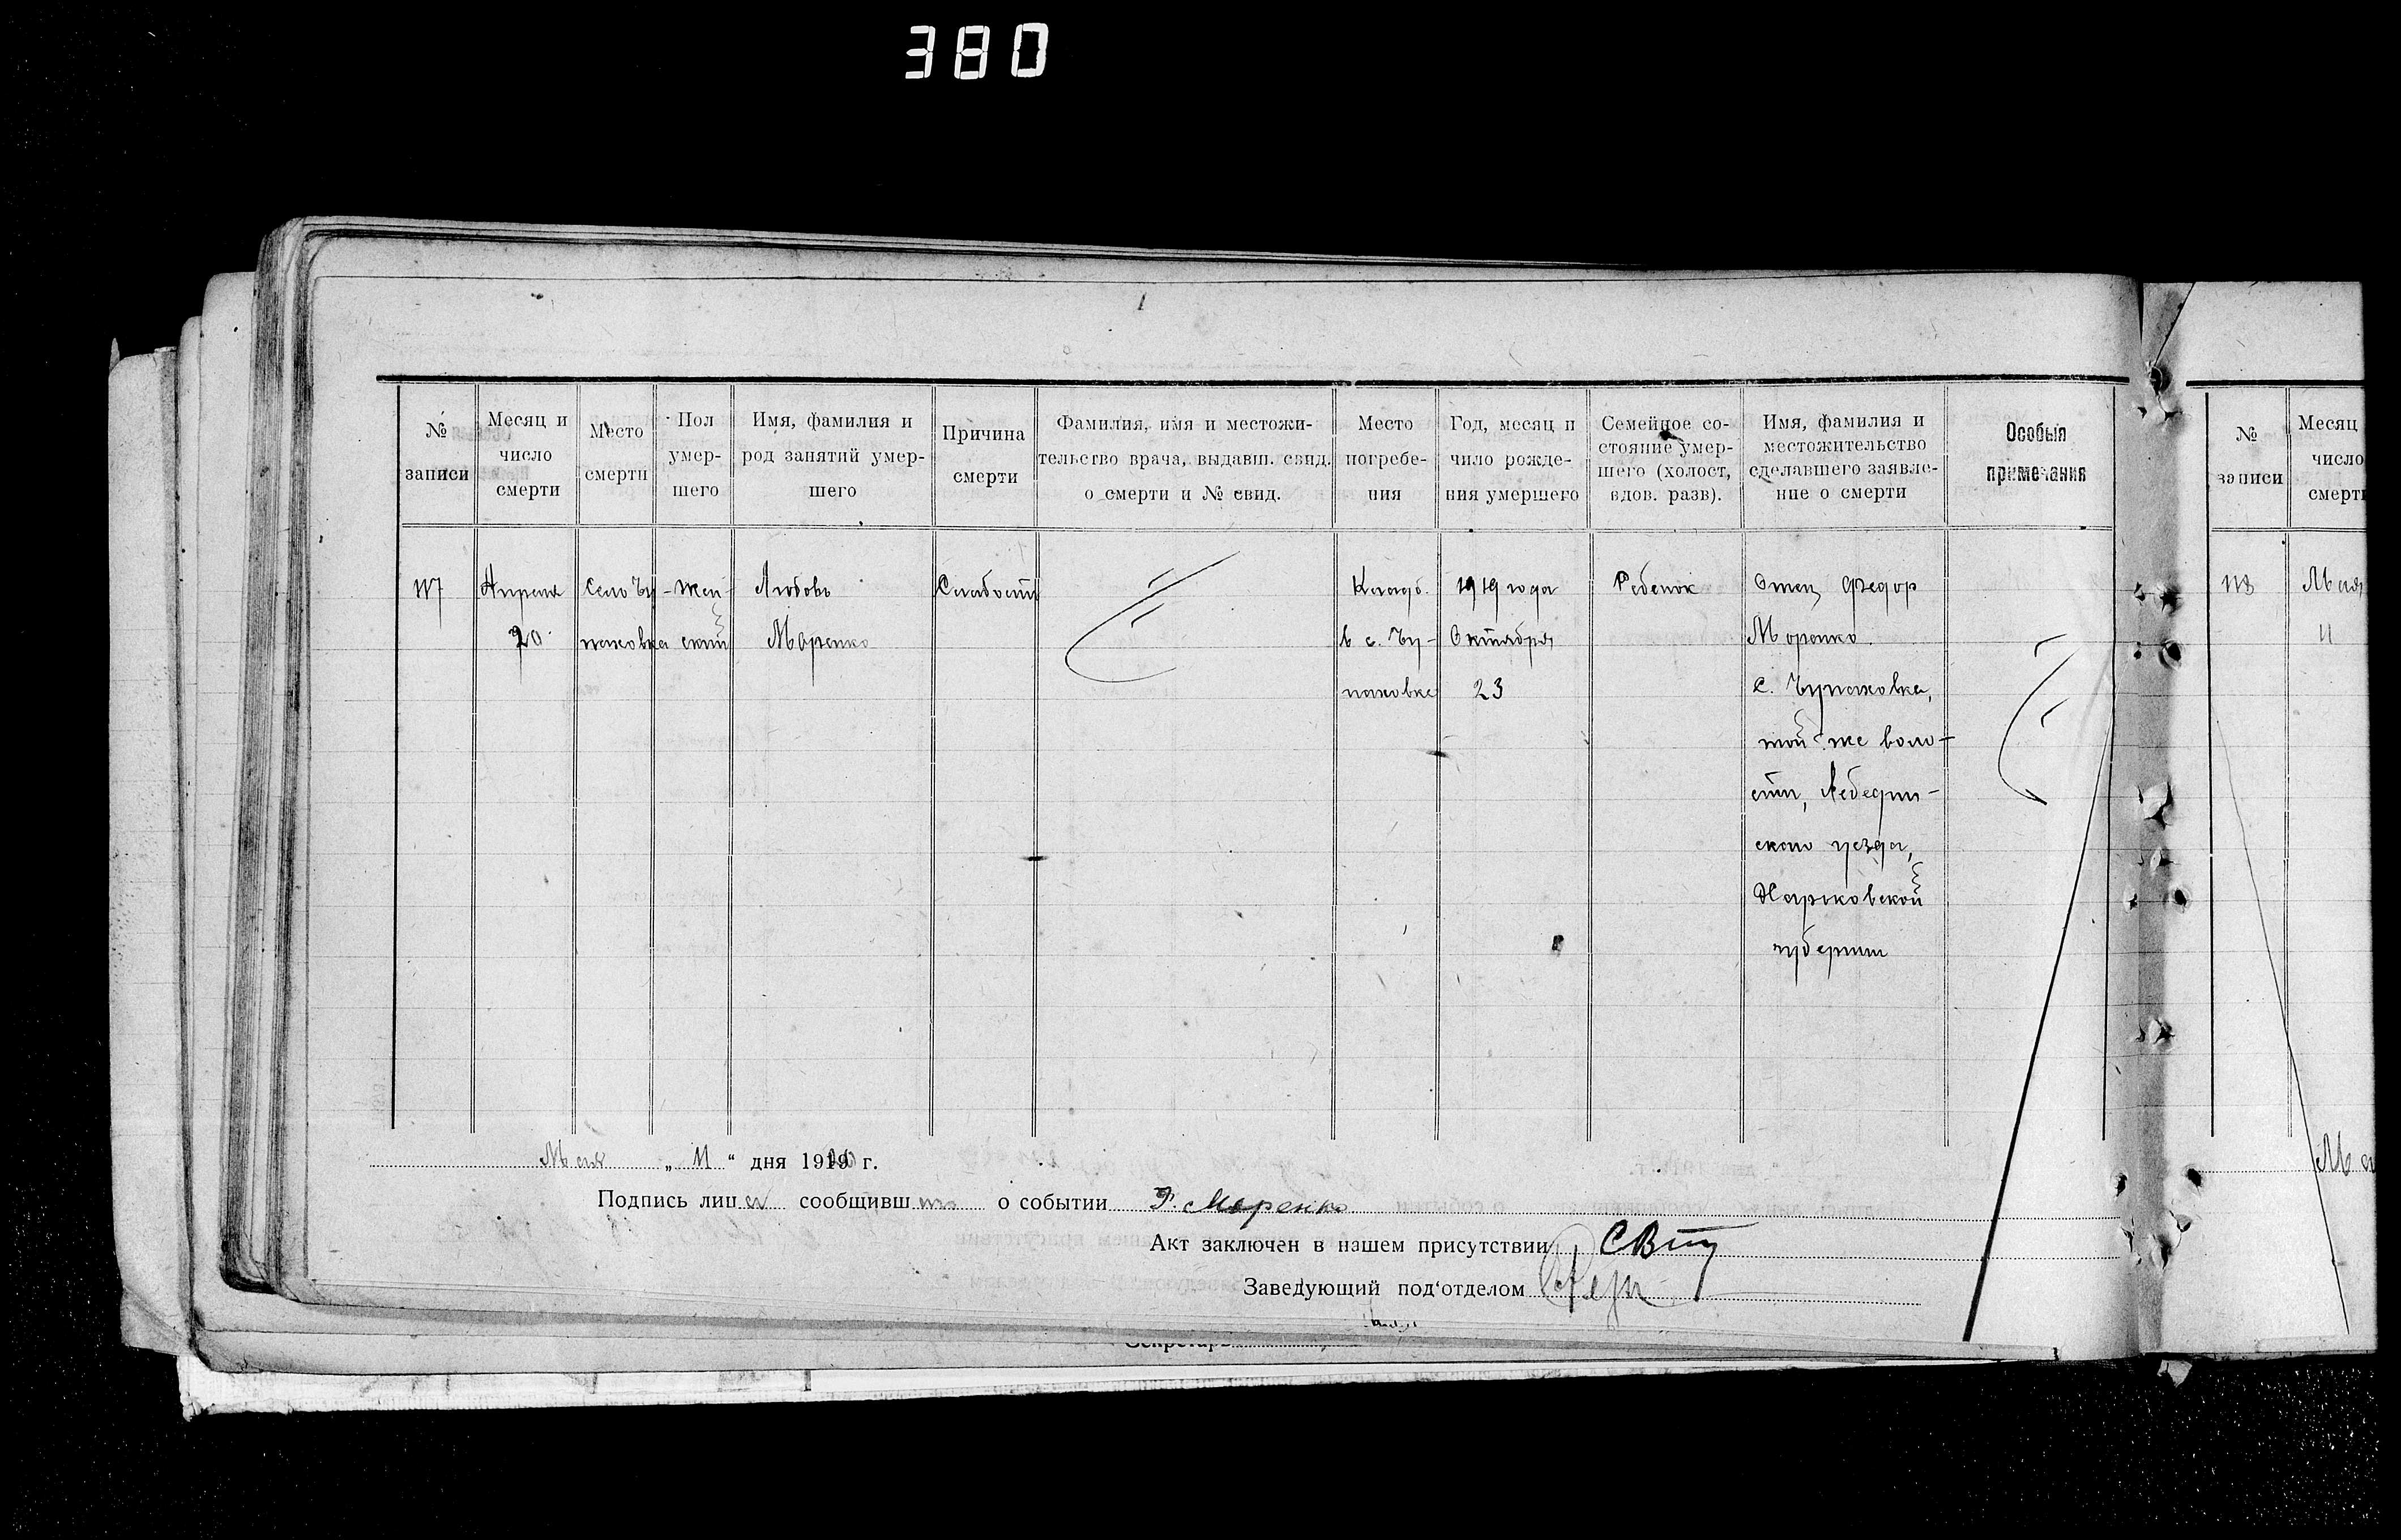 380
№
записи
Месяц и
число
смерти
Место
смерти
Пол
умер-
шего
Имя, фамилия и
род занятий умер-
шего
Причина
смерти
Фамилия, имя и местожи-
тельство врача, выдавш. свид.
о смерти и № свид.
Место
погребе-
ния
Год, месяц и
число рожде-
ния умершего
Семейное со-
стояние умер-
шего (холост,
вдов. разв).
Имя, фамилия и
местожительство
сделавшего заявле-
ние о смерти
Особыя
примечания
117
Апреля
20
Село Чу-
паховка
Жен-
ский
Любовь
Моренко
Слабость
Кладб.
в с. Чу-
паховке
1919 года
Октября
23
Ребенок
Отец Федор
Моренко
с. Чупаховка,
той же воло-
сти, Лебедин-
скаго уезда,
Харьковской
губернии
Мая „ 11 “ дня 1919 г.
Подпись лица сообщивш о событии Ф. Моренко
Акт заключен в нашем присутствии
Заведующий под‘отделом
Секретарь
№
записи
Месяц
число
смерти
118
Мая
11